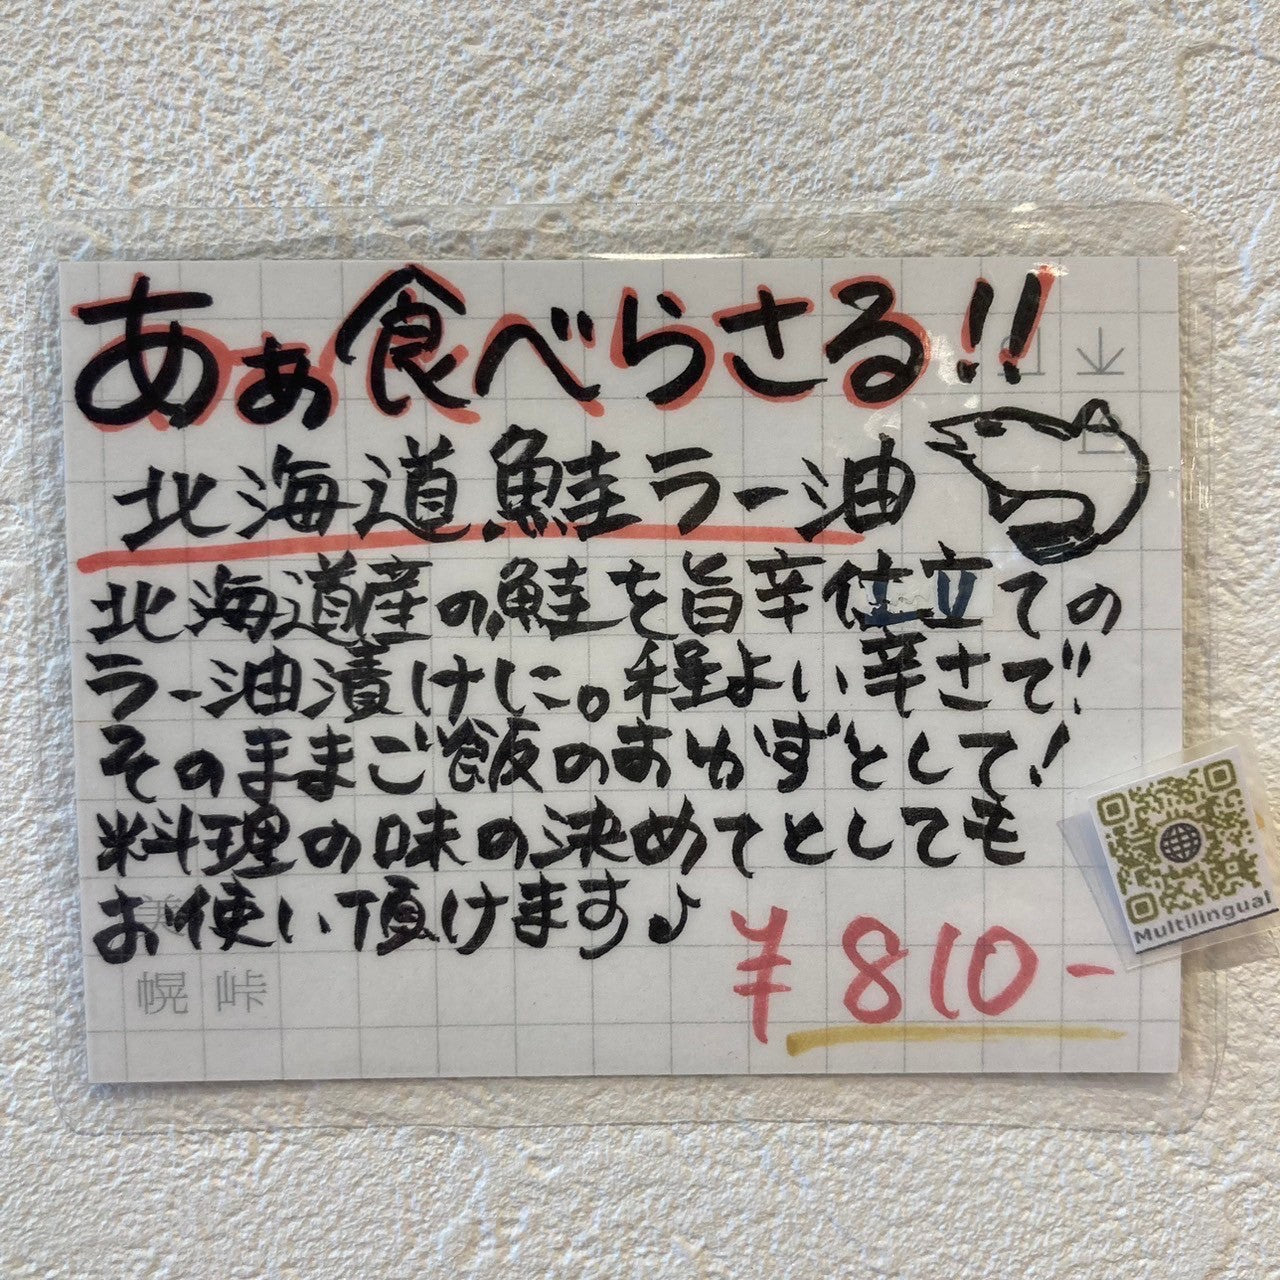 あぁ食べらさる!!
北海道鮭ラー油
北海道産の鮭を旨辛仕立ての
ラー油漬けに。程よい辛さで!!
そのままご飯のおかずとして!
料理の味の決めてとしても
お使い頂けます♪
美
幌 峠
¥810-
Multilingual